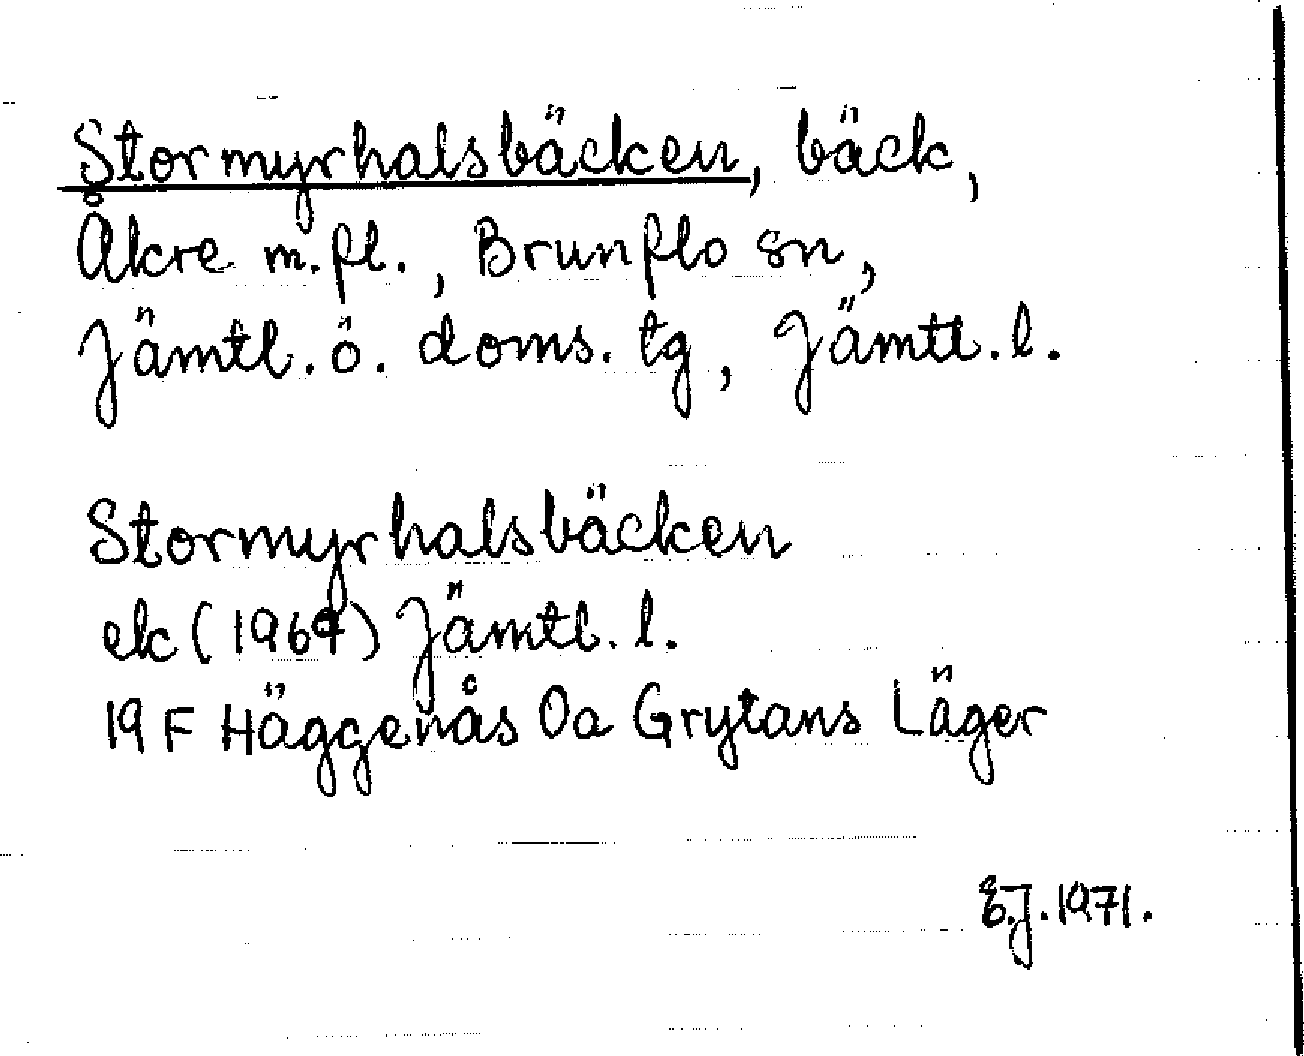 Stormyrhalsbäcken, bäck,
Åkre m.fl., Brunflo sn,
Jämtl. ö. doms. tg, Jämtl. l.
Stormyrhalsbäcken
ek (1969) Jämtl. l.
19 F Häggenås 0a Grytans Läger
E.J. 1971.